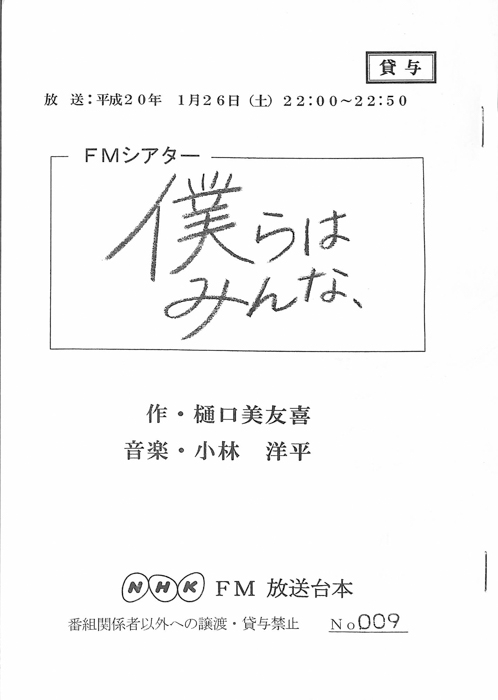 貸与
放 送：平成２０年 １月２６日（土）２２：００～２２：５０
ＦＭシアター
僕らは
みんな、
作・樋口美友喜
音楽・小林 洋平
NHK ＦＭ 放送台本
番組関係者以外への譲渡・貸与禁止 Ｎｏ009